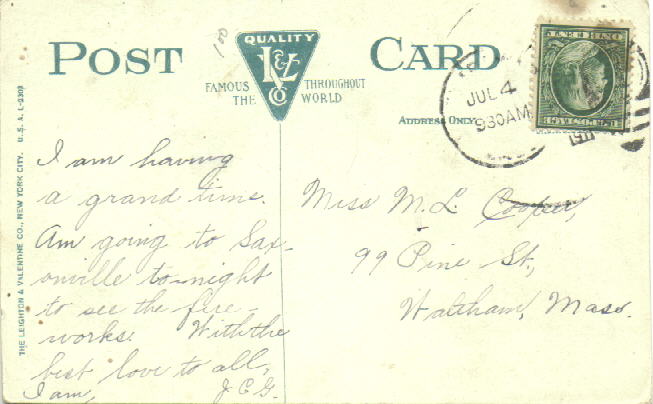 POST CARD
100
QUALITY
L&V
Co
FAMOUS THROUGHOUT
THE WORLD
ADDRESS ONLY
JUL 4
930AM
1911
ONE CENT
U.S. POSTAGE
THE LEIGHTON & VALENTINE CO., NEW YORK CITY. U. S. A. L-2303
I am having
a grand time.
Am going to Sax-
onville to-night
to see the fire-
works. With the
best love to all,
I am, J.C.G.
Miss M. L. Cooper,
99 Pine St,
Waltham, Mass.